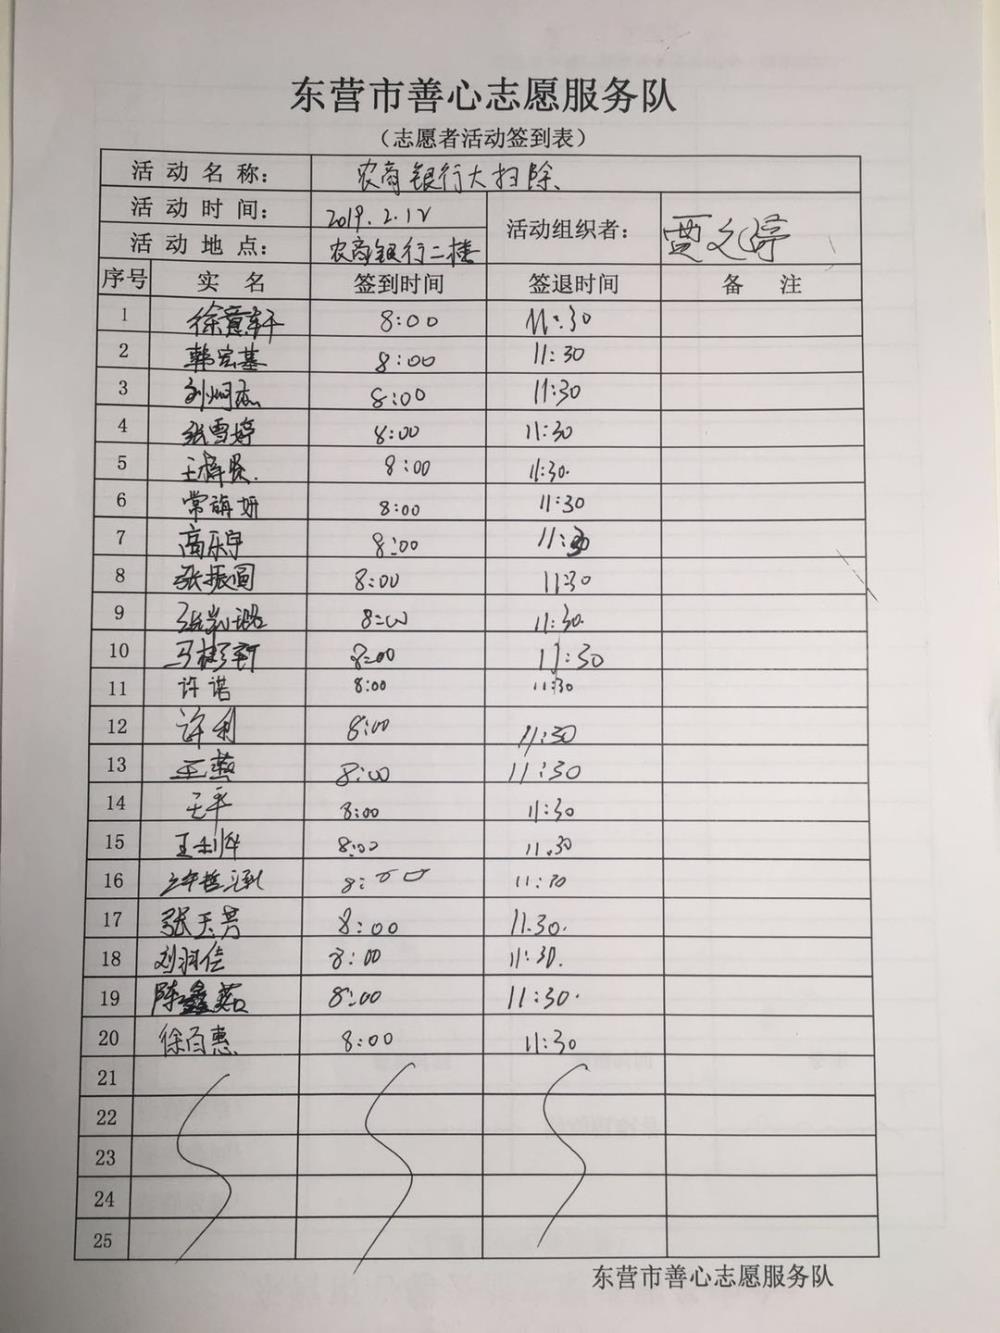 东营市善心志愿服务队
（志愿者活动签到表）
活动名称： 农商银行大扫除、
活动时间： 2019.2.12 活动组织者： 贾文婷
活动地点： 农商银行二楼
序号 实名 签到时间 签退时间 备注
1 徐 轩 8:00 11:30
2 韩宏基 8:00 11:30
3 刘炯杰 8:00 11:30
4 张雪婷 8:00 11:30
5 王 8:00 11:30.
6 常 妍 8:00 11:30
7 高乐宇 8:00 11:30
8 张振圆 8:00 11:30
9 张 璐 8:00 11:30.
10 马 8:00 11:30
11 许诺 8:00 11:30
12 许利 8:00 11:30
13 王燕 8:00 11:30
14 王平 8:00 11:30
15 王利 8:00 11.30
16 8:00 11:30
17 张玉芳 8:00 11.30.
18 刘羽佳 8:00 11:30.
19 陈鑫茹 8:00 11:30.
20 徐百惠 8:00 11:30
21
22
23
24
25
东营市善心志愿服务队